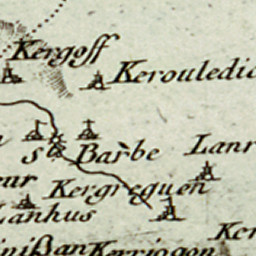 Kergoff
Kerouledic
S Barbe
Lanr
eur
Kergreguen
Lanhus
Ker
inißan Kerringon